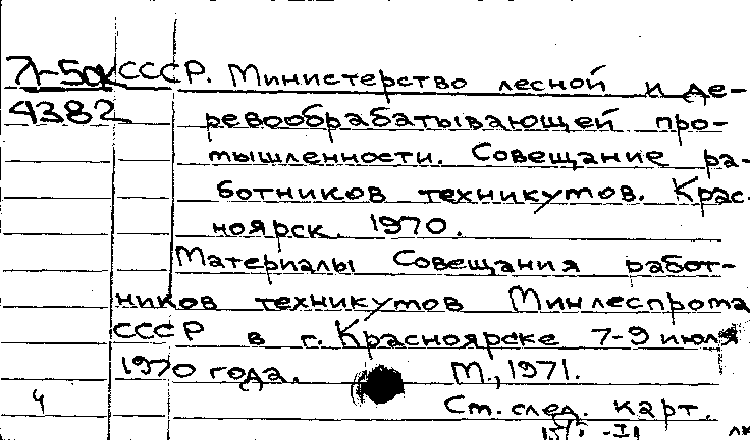 71-50к СССР. Министерство лесной и де-
4382 ревообрабатывающей про-
мышленности. Совещание ра-
ботников техникумов. Крас
ноярск. 1970.
Материалы Совещания работ-
ников техникумов Минлеспрома
СССР в г. Красноярске 7-9 июля
1970 года. М., 1971.
4 См. след. карт.